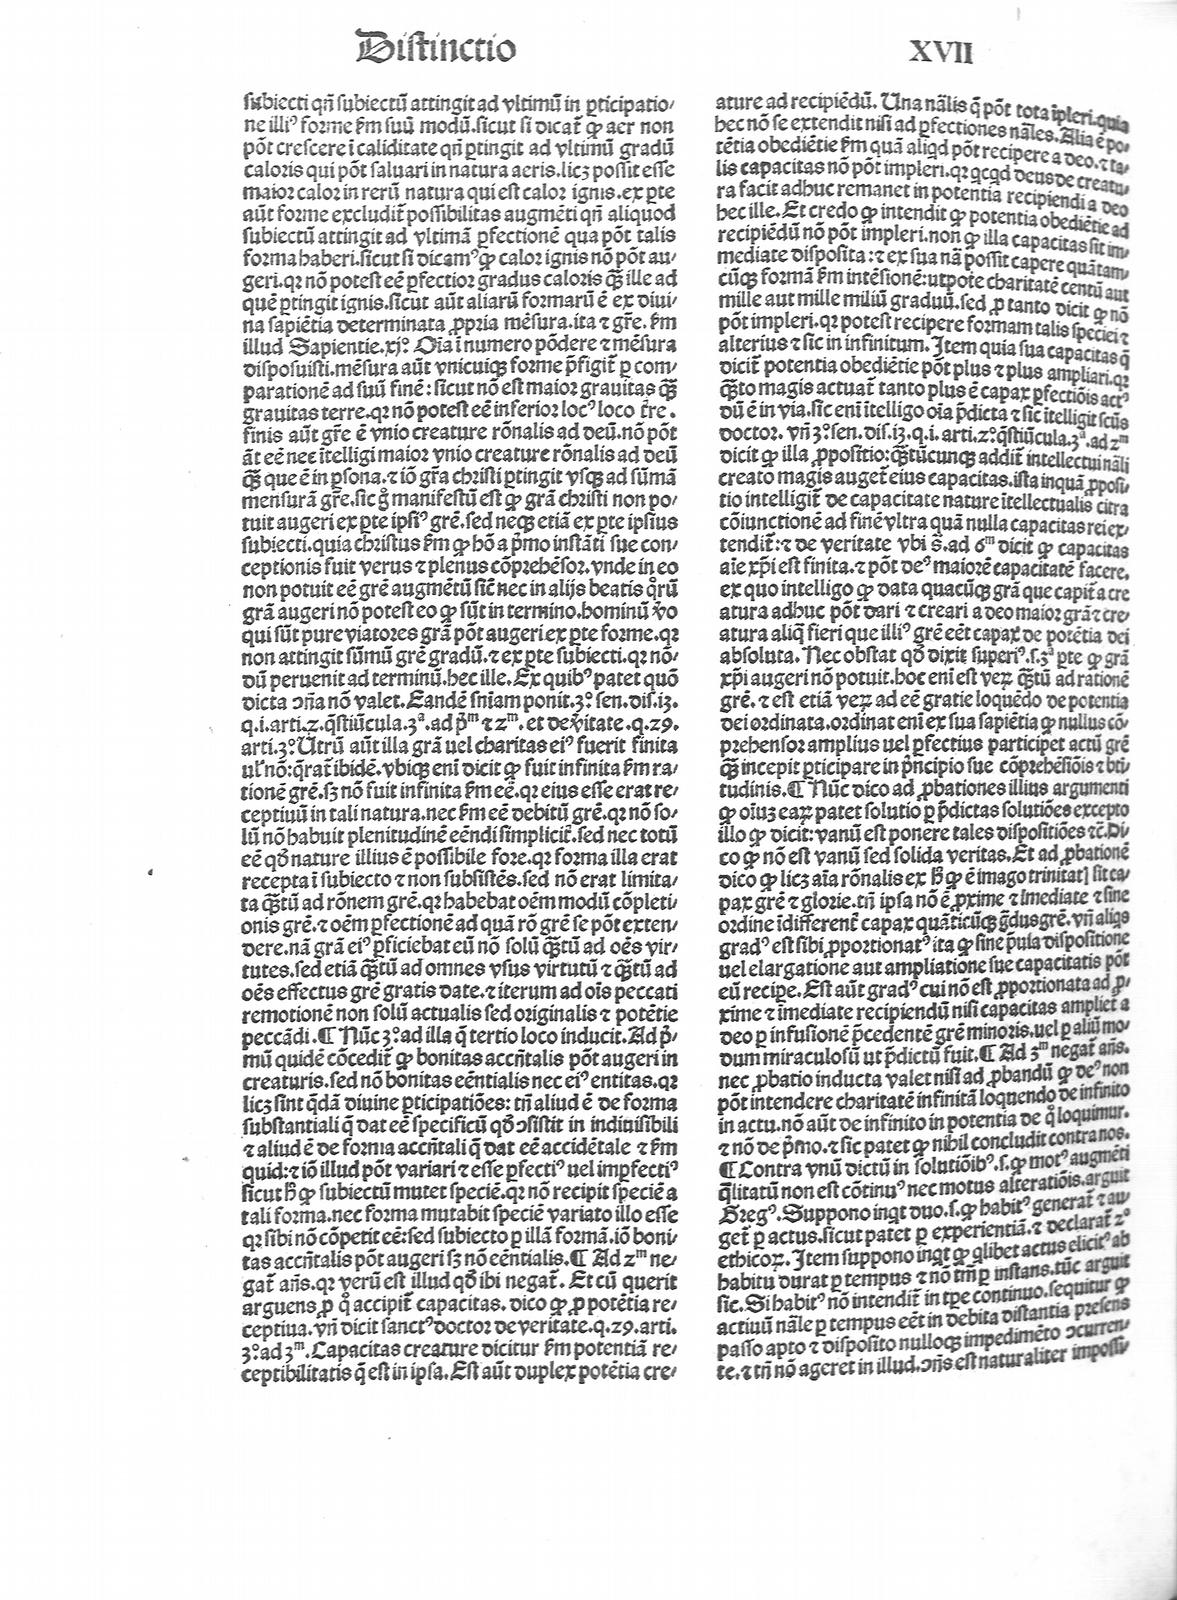 Distinctio
XVII
subiecti qñ subiectū attingit ad vltimū in ꝑticipatio/
ne illiꝰ forme ẜm suū modū.sicut si dicat᷑ ꝙ aer non
pōt crescere ī caliditate qñ ꝑtingit ad vltimū gradū
caloris qui pōt saluari in natura aeris.licꝫ possit esse
maior calor in rerū natura qui est calor ignis.ex ꝑte
aūt forme excludit᷑ possibilitas augmēti qñ aliquod
subiectū attingit ad vltimā ꝑfectionē qua pōt talis
forma haberi.sicut si dicamꝰ ꝙ calor ignis nō pōt au/
geri.qꝛ nō potest eē ꝑfectior gradus caloris qꝫ ille ad
quē ꝑtingit ignis.sicut aūt aliarū formarū ē ex diui/
na sapiētia determinata ꝓpria mēsura.ita ⁊ gr̄e.ẜm
illud Sapientie.xjº. Oīa ī numero pōdere ⁊ mēsura
disposuisti.mēsura aūt vnicuiqꝫ forme p̄figit᷑ ꝑ com/
parationē ad suū finē: sicut nō est maior grauitas qꝫ
grauitas terre.qꝛ nō potest eē inferior locꝰ loco tr̄e.
finis aūt gr̄e ē vnio creature rōnalis ad deū.nō pōt
āt eē nec ītelligi maior vnio creature rōnalis ad deū
qꝫ que ē in ꝑsona.⁊ iō gr̄a christi ꝑtingit vsqꝫ ad sūmā
mensurā gr̄e.sic g̊ manifestū est ꝙ grā christi non po/
tuit augeri ex ꝑte ipsiꝰ grē.sed neqꝫ etiā ex ꝑte ipsius
subiecti.quia christus ẜm ꝙ hō a p̄mo instāti sue con/
ceptionis fuit verus ⁊ plenus cōprehēsor.vnde in eo
non potuit eē grē augmētū sic̄ nec in alijs beatis qͦrū
grā augeri nō potest eo ꝙ sūt in termino.hominū ꝟo
qui sūt pure viatores grā pōt augeri ex ꝑte forme.qꝛ
non attingit sūmū grē gradū.⁊ ex ꝑte subiecti.qꝛ nō/
dū peruenit ad terminū.hec ille. Ex quibꝰ patet quō
dicta ↄ̄ria nō valet. Eandē sniam ponit.3º. sen. dis.13.
q.i.arti.2.qōstiūcula.3ª.ad p̄m ⁊ 2m. et de ꝟitate.q.29.
arti.3º.Utrū aūt illa grā uel charitas eiꝰ fuerit finita
ul' nō:q̄rat᷑ ibidē.vbiqꝫ enī dicit ꝙ fuit infinita ẜm ra/
tionē grē.sꝫ nō fuit infinita ẜm eē.qꝛ eius esse erat re/
ceptiuū in tali natura.nec ẜm eē debitū grē.qꝛ nō so/
lū nō habuit plenitudinē eēndi simplicit̄.sed nec totū
eē qđ nature illius ē possibile fore.qꝛ forma illa erat
recepta ī subiecto ⁊ non subsistēs.sed nō erat limita/
ta qꝫtū ad rōnem grē.qꝛ habebat oēm modū cōpleti/
onis grē.⁊ oēm ꝑfectionē ad quā rō grē se pōt exten/
dere.nā grā eiꝰ ꝑficiebat eū nō solū qꝫtū ad oēs vir/
tutes.sed etiā qꝫtū ad omnes vsus virtutū ⁊ qꝫtū ad
oēs effectus grē gratis date.⁊ iterum ad oīs peccati
remotionē non solū actualis sed originalis ⁊ potētie
peccādi.¶ Nūc 3º.ad illa q̄ tertio loco inducit. Ad p̄/
mū quidē cōcedit᷑ ꝙ bonitas accn̄talis pōt augeri in
creaturis.sed nō bonitas eēntialis nec eiꝰ entitas.qꝛ
licꝫ sint q̄dā diuine ꝑticipatiōes: tn̄ aliud ē de forma
substantiali q̄ dat eē specificū qđ ↄsistit in indiuisibili
⁊ aliud ē de forma accn̄tali q̄ dat eē accidētale ⁊ ẜm
quid:⁊ iō illud pōt variari ⁊ esse ꝑfectiꝰ uel imꝑfectiꝰ
sicut ħ ꝙ subiectū mutet speciē.qꝛ nō recipit speciē a
tali forma.nec forma mutabit speciē variato illo esse
qꝛ sibi nō cōpetit eē:sed subiecto ꝑ illā formā.iō boni/
tas accn̄talis pōt augeri sꝫ nō eēntialis.¶ Ad 2m ne/
gat᷑ an̄s.qꝛ verū est illud qđ ibi negat᷑. Et cū querit
arguens ꝓ qͦ accipit᷑ capacitas.dico ꝙ ꝓ potētia re/
ceptiua.vn̄ dicit sanctꝰ doctor de veritate.q.29.arti.
3º.ad 3m.Capacitas creature dicitur ẜm potentiā re/
ceptibilitatis q̄ est in ipsa. Est aūt duplex potētia cre/
ature ad recipiēdū. Una nālis q̄ pōt tota īpleri.quia
hec nō se extendit nisi ad ꝑfectiones nāles. Alia ē po/
tētia obediētie ẜm quā aliqd pōt recipere a deo.⁊ ta/
lis capacitas nō pōt impleri.qꝛ qͥcqͥd deus de creatu/
ra facit adhuc remanet in potentia recipiendi a deo
hec ille. Et credo ꝙ intendit ꝙ potentia obediētie ad
recipiēdū nō pōt impleri.non ꝙ illa capacitas sit im/
mediate disposita:⁊ ex sua nā possit capere quātam/
cūqꝫ formā ẜm intēsionē:utpote charitatē centū aut
mille aut mille miliū graduū.sed ꝓ tanto dicit ꝙ nō
pōt impleri.qꝛ potest recipere formam talis speciei ⁊
alterius ⁊ sic in infinitum. Item quia sua capacitas q̄
dicit᷑ potentia obediētie pōt plus ⁊ plus ampliari.qꝛ
qꝫto magis actuat᷑ tanto plus ē capax ꝑfectiōis actꝰ
dū ē in via.sic enī ītelligo oīa p̄dicta ⁊ sic ītelligit scūs
doctor. vn̄ 3º.sen.dis.13.q.i.arti.2º.qōstiūcula.3ª.ad 2m
dicit ꝙ illa ꝓpositio:qꝫtūcunqꝫ addit᷑ intellectui nāli
creato magis auget᷑ eius capacitas.ista inquā ꝓposi/
tio intelligit᷑ de capacitate nature ītellectualis citra
cōiunctionē ad finē vltra quā nulla capacitas rei ex/
tendit᷑:⁊ de veritate vbi s̄.ad 6m dicit ꝙ capacitas
aīe xp̄i est finita.⁊ pōt deꝰ maiorē capacitatē facere.
ex quo intelligo ꝙ data quacūqꝫ grā que capit᷑ a cre
atura adhuc pōt dari ⁊ creari a deo maior grā ⁊ cre/
atura aliq̄ fieri que illiꝰ grē eēt capax de potētia dei
absoluta. Nec obstat qđ dixit superiꝰ.s.3ª pte ꝙ grā
xp̄i augeri nō potuit.hoc enī est veꝝ qꝫtū ad rationē
grē.⁊ est etiā veꝝ ad eē gratie loquēdo de potentia
dei ordinata.ordinat enī ex sua sapiētia ꝙ nullus cō/
prehensor amplius uel ꝑfectius participet actū grē
qꝫ incepit ꝑticipare in p̄ncipio sue cōprehēsiōis ⁊ bti/
tudinis.¶ Nūc dico ad ꝓbationes illius argumenti
ꝙ oīuꝫ eaꝝ patet solutio ꝑ p̄dictas solutiōes excepto
illo ꝙ dicit:vanū est ponere tales dispositiōes ⁊c̄.Di/
co ꝙ nō est vanū sed solida veritas. Et ad ꝓbationē
dico ꝙ licꝫ aīa rōnalis ex ħ ꝙ ē imago trinitatꝭ sit ca/
pax grē ⁊ glorie.tn̄ ipsa nō ē ꝓxime ⁊ īmediate ⁊ sine
ordine īdifferent̄ capax quāticūqꝫ gͣdus grē.vn̄ aliqͥs
gradꝰ est sibi ꝓportionatꝰ ita ꝙ sine p̄uia dispositione
uel elargatione aut ampliatione sue capacitatis pōt
eū recipe. Est aūt gradꝰ cui nō est ꝓportionata ad ꝓ/
xime ⁊ īmediate recipiendū nisi capacitas ampliet᷑ a
deo ꝑ infusionē p̄cedentē grē minoris.uel ꝑ aliū mo/
dum miraculosū ut p̄dictū fuit.¶ Ad 3m negat᷑ an̄s.
nec ꝓbatio inducta valet nisi ad ꝓbandū ꝙ deꝰ non
pōt intendere charitatē infinitā loquendo de infinito
in actu.nō aūt de infinito in potentia de qͦ loquimur.
⁊ nō de p̄mo.⁊ sic patet ꝙ nihil concludit contra nos.
¶ Contra vnū dictū in solutiōibꝰ.s.ꝙ motꝰ augmēti
q̄litatū non est cōtinuꝰ nec motus alteratiōis.arguit
Gregꝰ. Suppono inqͥt duo.s.ꝙ habitꝰ generat᷑ ⁊ au/
get᷑ ꝑ actus.sicut patet ꝑ experientiā.⁊ declarat᷑ 2º
ethicoꝝ. Item suppono inqͥt ꝙ qͥlibet actus elicitꝰ ab
habitu durat ꝑ tempus ⁊ nō tm̄ ꝑ instans.tūc arguit
sic. Si habitꝰ nō intendit᷑ in tꝑe continuo.sequitur ꝙ
actiuū nāle ꝑ tempus eēt in debita distantia presens
passo apto ⁊ disposito nulloqꝫ impedimēto ↄcurren/
te.⁊ tn̄ nō ageret in illud.ↄn̄s est naturaliter impossi/